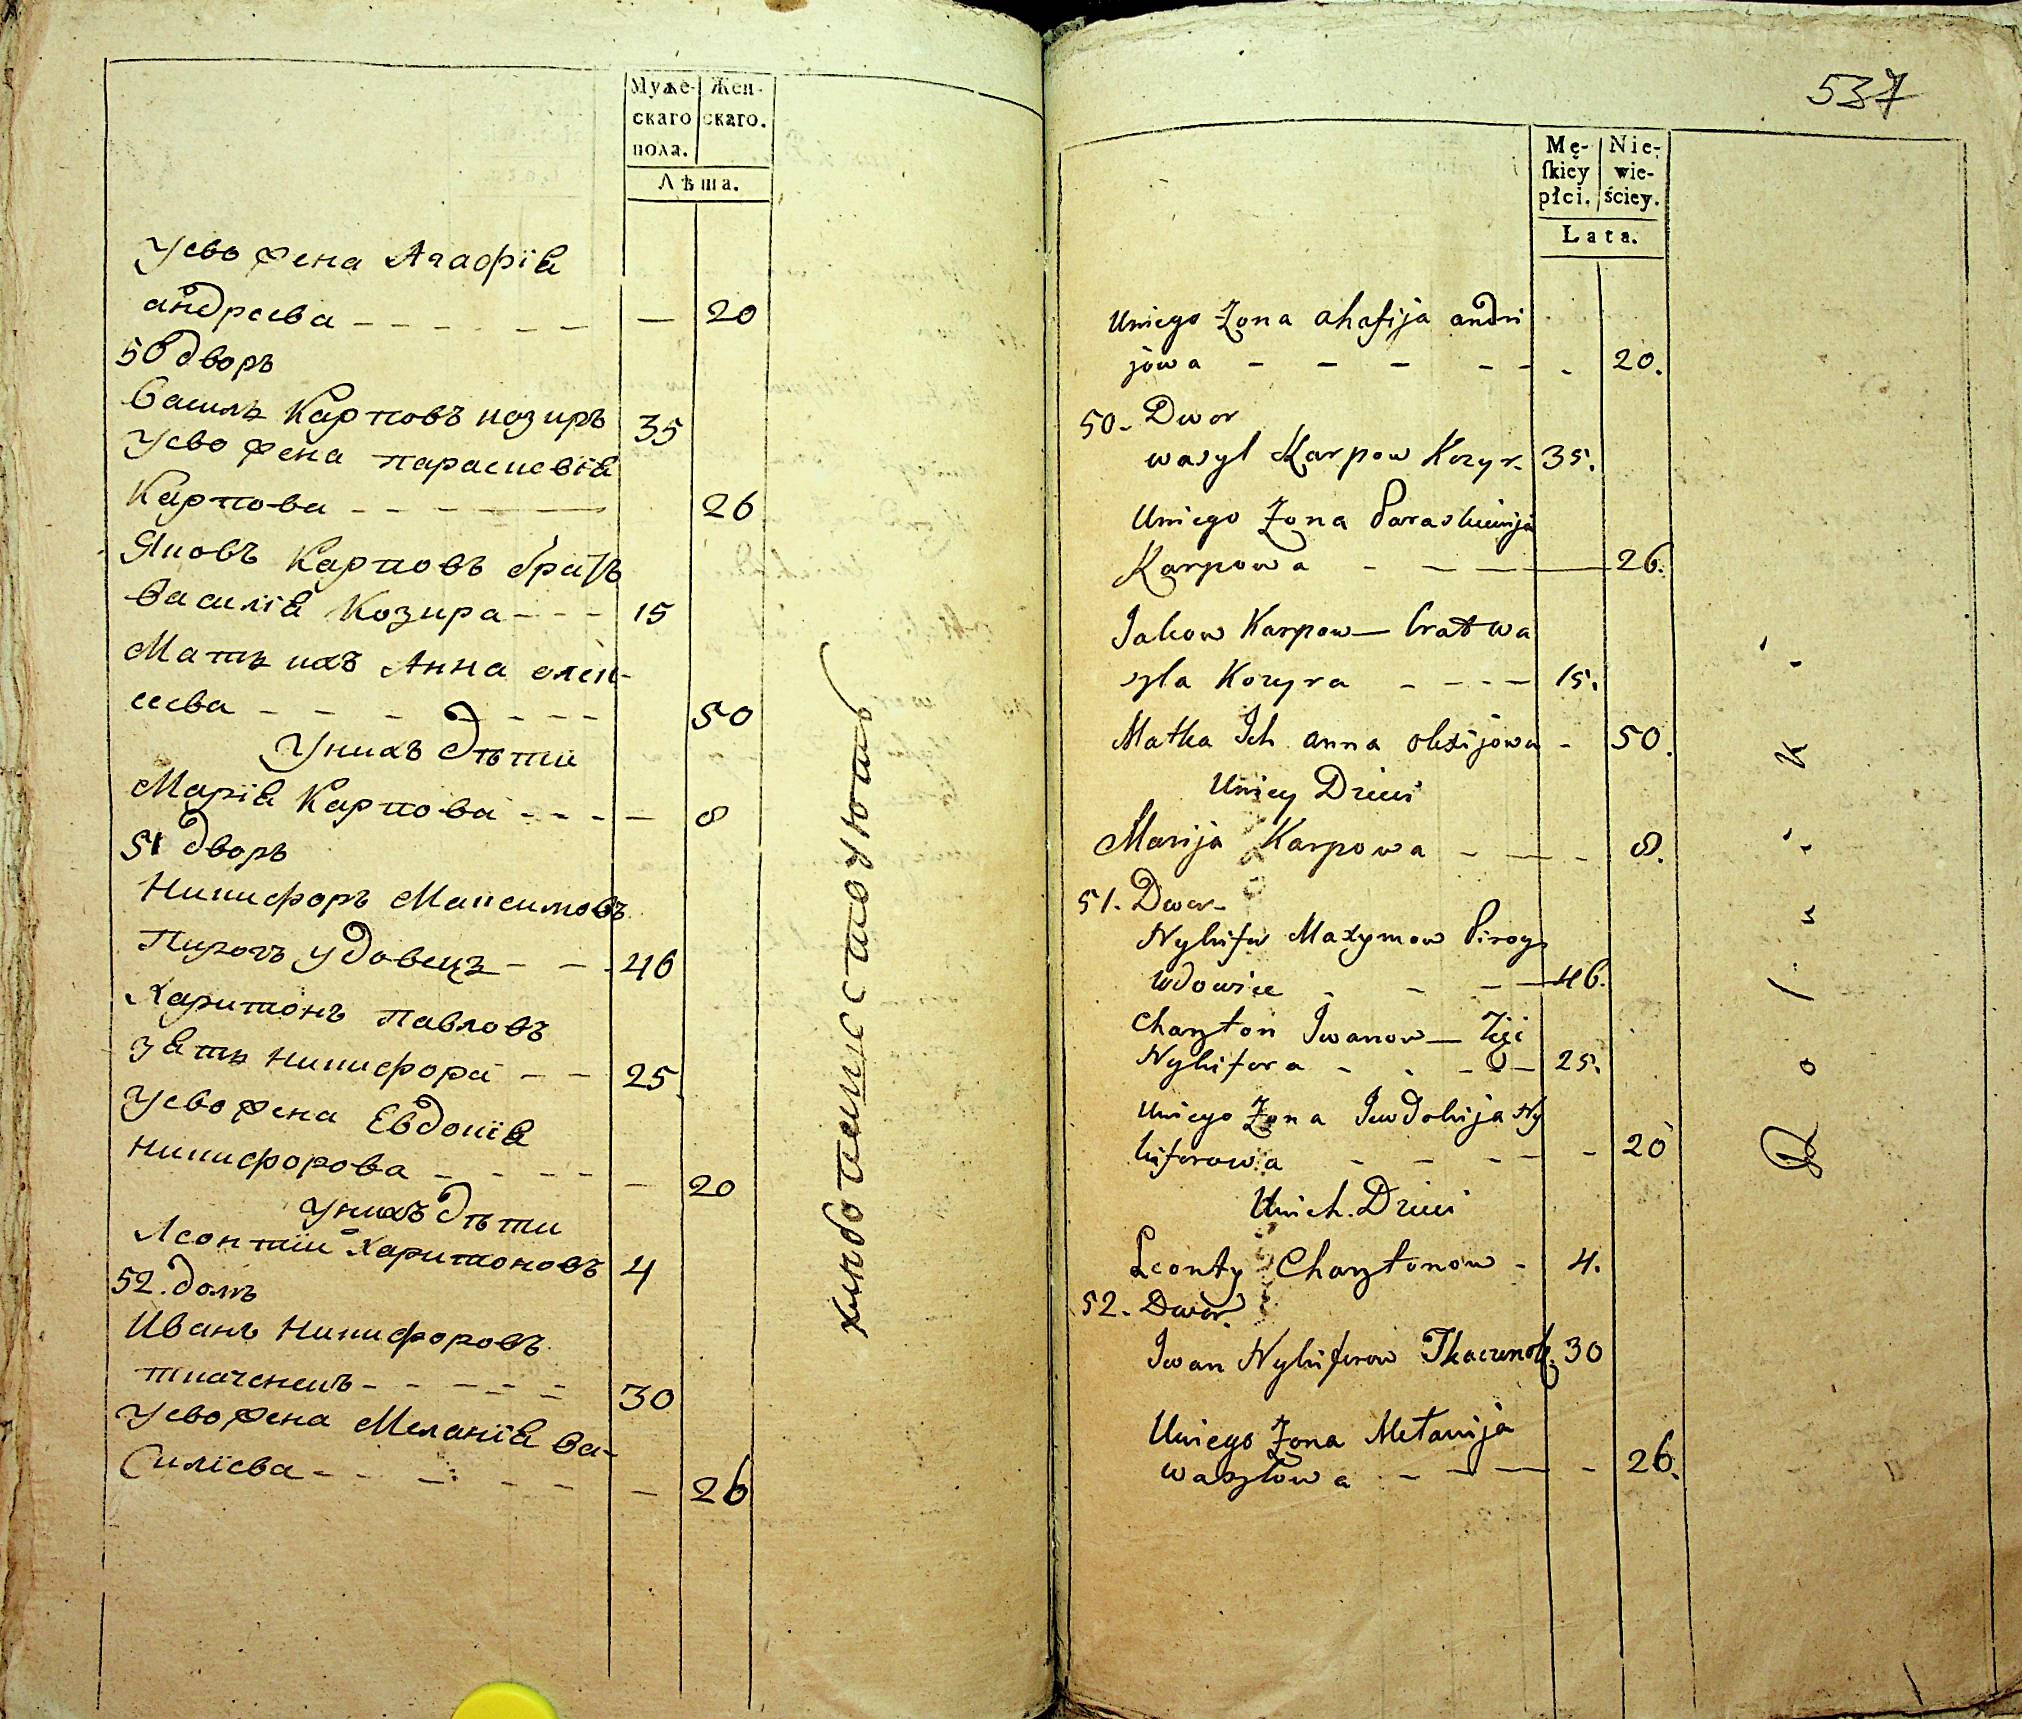 Муже- Жен-
скаго скаго.
пола.
Лѣта.
Уево жена Агафія
андреева — 20
50 дворъ
Василь Карповъ козиръ 35
Уево жена параскевія
Карпова 26
Яковъ Карповъ братъ
Василія Козира 15
Мать ихъ Анна олек-
сеева 50
Унихъ дѣти
Марія Карпова — 8
51 дворъ
Никифоръ Максимовъ
Пирогъ удовецъ 46
Харитонъ Павловъ
зять Никифора 25
Уево жена Евдокія
Никифорова — 20
Унихъ дѣти
Леонтий Харитоновъ 4
52. домъ
Иванъ Никифоровъ
ткаченкъ 30
Уево жена Меланія ва-
силиева — 26
хлѣбопашествуютъ
537
Mę- Nie-
ſkiey wie-
płci. ściey.
Lata.
Uniego Zona ahafija andri
jowa 20.
50. Dwor
wasyl Karpow Kozyr. 35.
Uniego Zona Paraskiewija
Karpowa 26.
Jakow Karpow — brat wa
syla Kozyra 15.
Matka Ich anna olexijowa 50.
Unich Dzieci
Marija Karpowa 8.
51. Dwor
Nykifor Maxymow Pirog
wdowiec 46.
Charyton Iwanow — Zięć
Nykifora 25.
Uniego Zona Jewdokija Ny
kiforowa 20
Unich. Dzieci
Leonty Charytonow 4.
52. Dwor.
Iwan Nykiforow Tkaczenok. 30
Uniego Zona Mełanija
wasylowa 26.
Rolnik